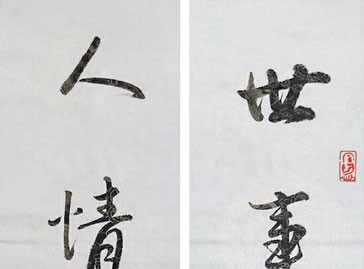 世事
人情